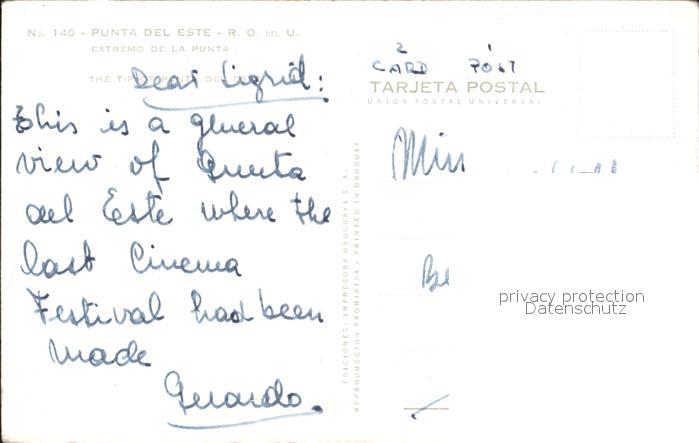 No. 140 - PUNTA DEL ESTE - R. O. DEL U.
EXTREMO DE LA PUNTA
THE TIP OF PUNTA DEL ESTE
Dear Sigrid:
This is a general
view of Punta
del Este where the
last Cinema
Festival had been
made
Gerardo.
EDICIONES: IMPRESORA URUGUAYA S. A.
REPRODUCCION PROHIBIDA - PRINTED IN URUGUAY
2 1
CARD POST
TARJETA POSTAL
UNION POSTAL UNIVERSAL
Be
privacy protection
Datenschutz